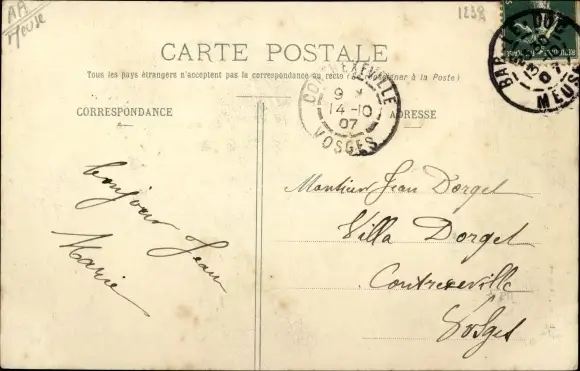 AR
Meuse
123
CARTE POSTALE
Tous les pays étrangers n'acceptent pas la correspondance au recto (Se renseigner à la Poste)
CORRESPONDANCE
ADRESSE
CONTREXEVILLE
9
14-10
07
VOSGES
BAR-LE-DUC
07
MEUSE
bonjour Jean
Marie
Monsieur Jean Dorget
Villa Dorget
Contrexeville
Vosges